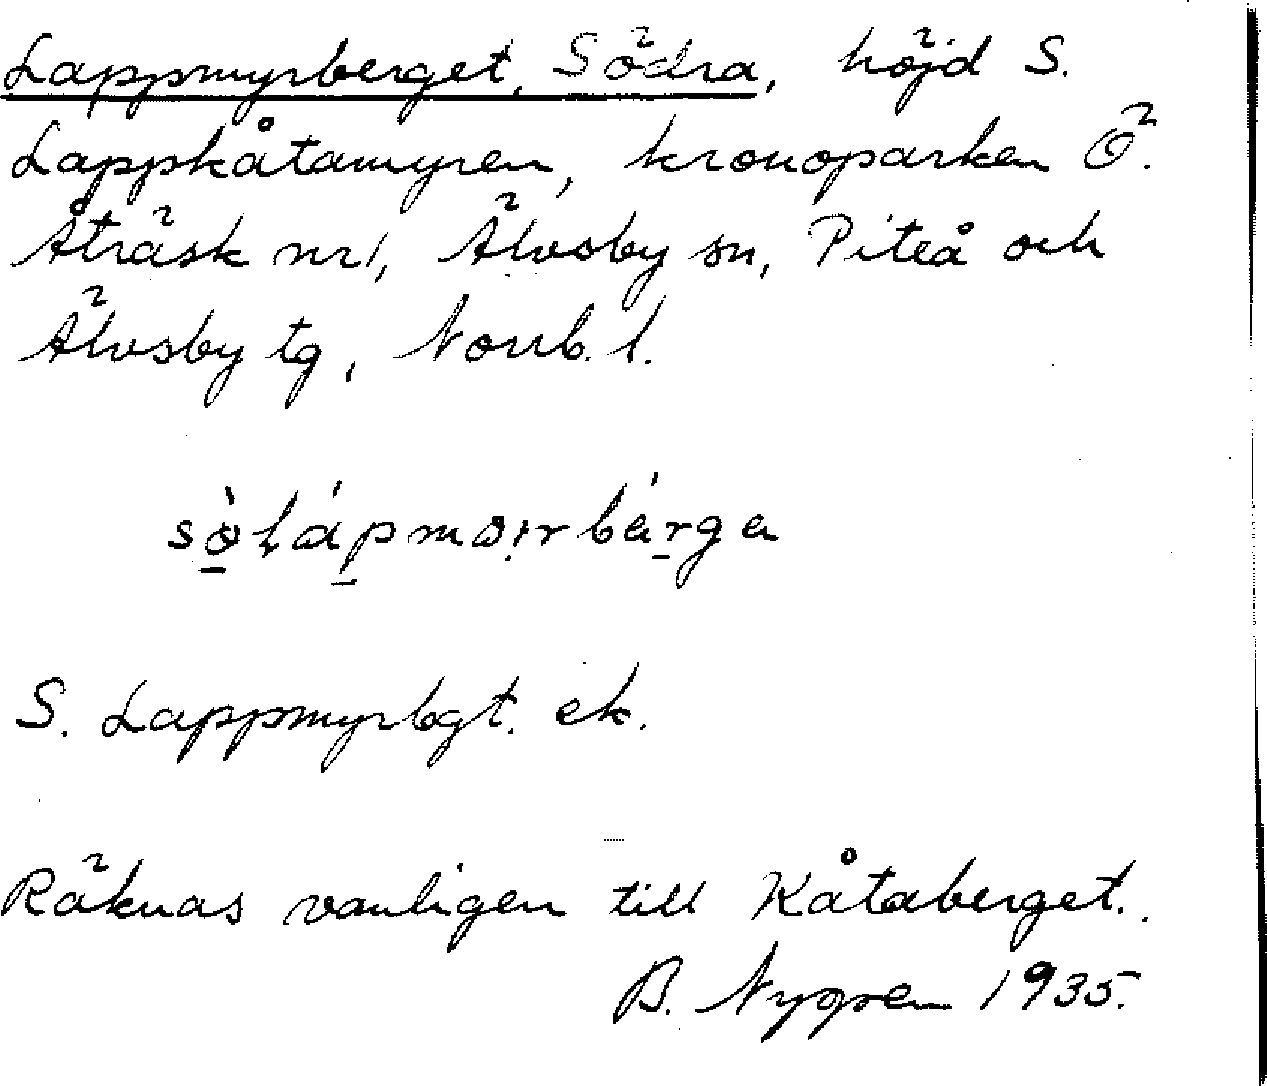 Lappmyrberget, Södra, höjd S.
Lappkåtamyren, kronoparken Ö.
Åträsk nr 1, Älvsby sn, Piteå och
Älvsby tg, Norrb. l.
S. Lappmyrbgt. ek.
Räknas vanligen till Kåtaberget.
B. Nygren 1935.